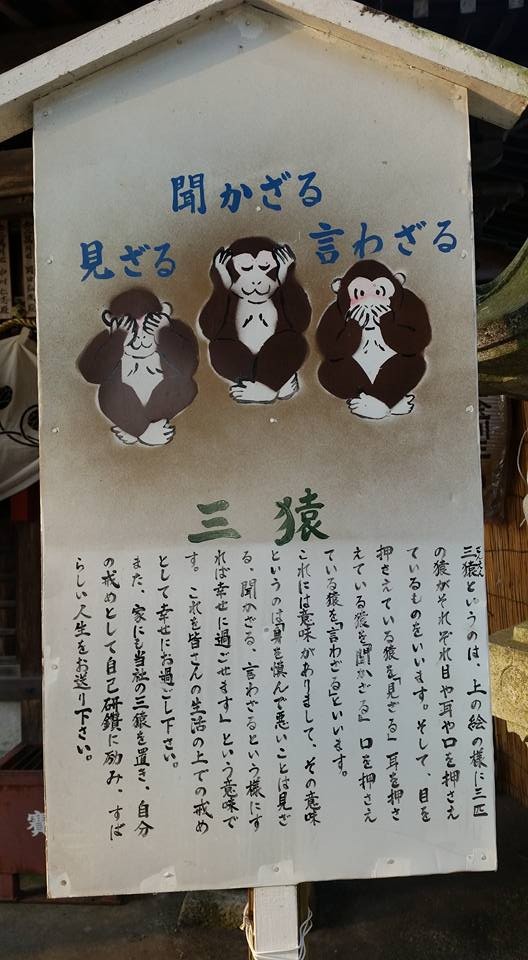 聞かざる
言わざる
見ざる
三猿
さんえん
三猿というのは、上の絵の様に三匹
の猿がそれぞれ目や耳や口を押さえ
ているものをいいます。そして、目を
押さえている猿を『見ざる』耳を押さ
えている猿を『聞かざる』口を押さえ
ている猿を『言わざる』といいます。
これには意味がありまして、その意味
というのは『身を慎んで悪いことは見ざ
る、聞かざる、言わざるという様にす
れば幸せに過ごせます』という意味で
す。これを皆さんの生活の上での戒め
として幸せにお過ごし下さい。
また、家にも当社の三猿を置き、自分
の戒めとして自己研鑽に励み、すば
らしい人生をお送り下さい。